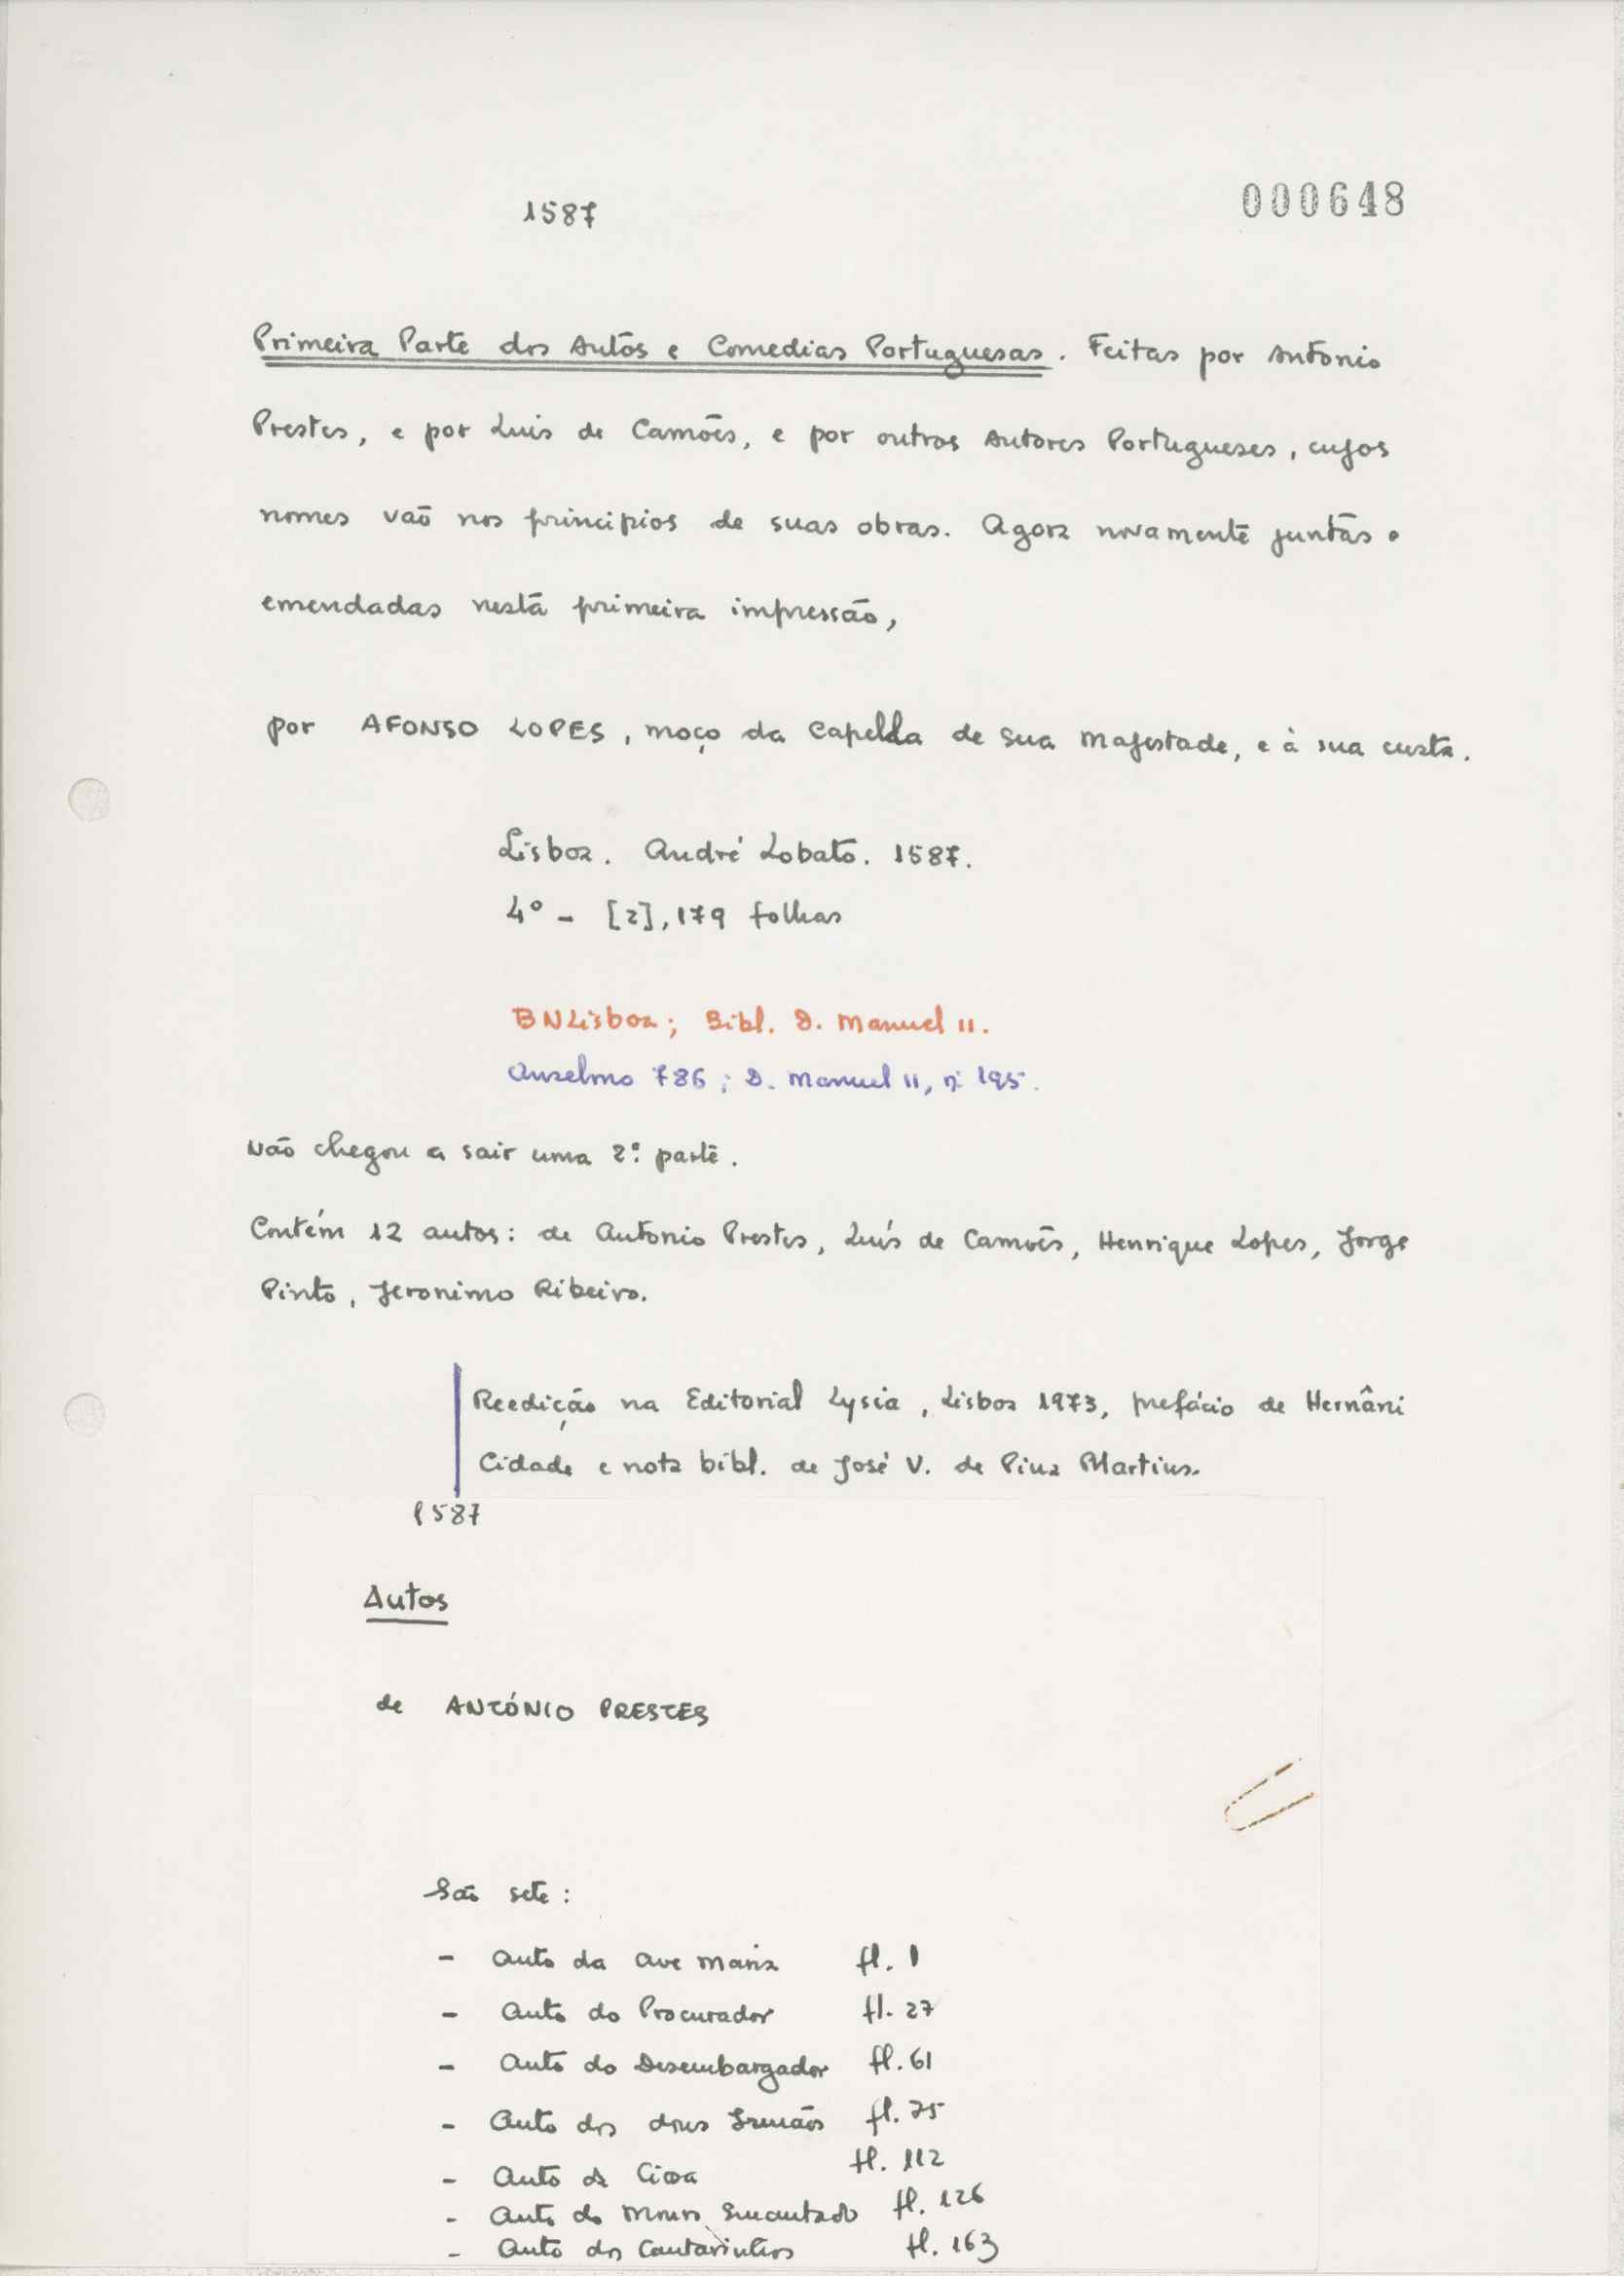 1587
000648
Primeira Parte dos Autos e Comedias Portuguesas. Feitas por Antonio
Prestes, e por Luis de Camões, e por outros Autores Portugueses, cujos
nomes vaõ nos principios de suas obras. Agora novamente juntas e
emendadas nesta primeira impressão,
por AFONSO LOPES, moço da Capella de Sua Majestade, e à sua custa.
Lisboa. André Lobato. 1587.
4º - [2], 179 folhas
BNLisboa; Bibl. D. Manuel II.
Anselmo 786; D. Manuel II, nº 195.
Não chegou a sair uma 2ª parte.
Contém 12 autos: de Antonio Prestes, Luís de Camões, Henrique Lopes, Jorge
Pinto, Jeronimo Ribeiro.
Reedição na Editorial Lysia, Lisboa 1973, prefácio de Hernâni
Cidade e nota bibl. de José V. de Pina Martins.
1587
Autos
de ANTÓNIO PRESTES
São sete:
- Auto da Ave Maria fl. 1
- Auto do Procurador fl. 27
- Auto do Desembargador fl. 61
- Auto dos dous Irmãos fl. 75
- Auto da Ciosa fl. 112
- Auto do Mouro Encantado fl. 126
- Auto dos Cantarinhos fl. 163